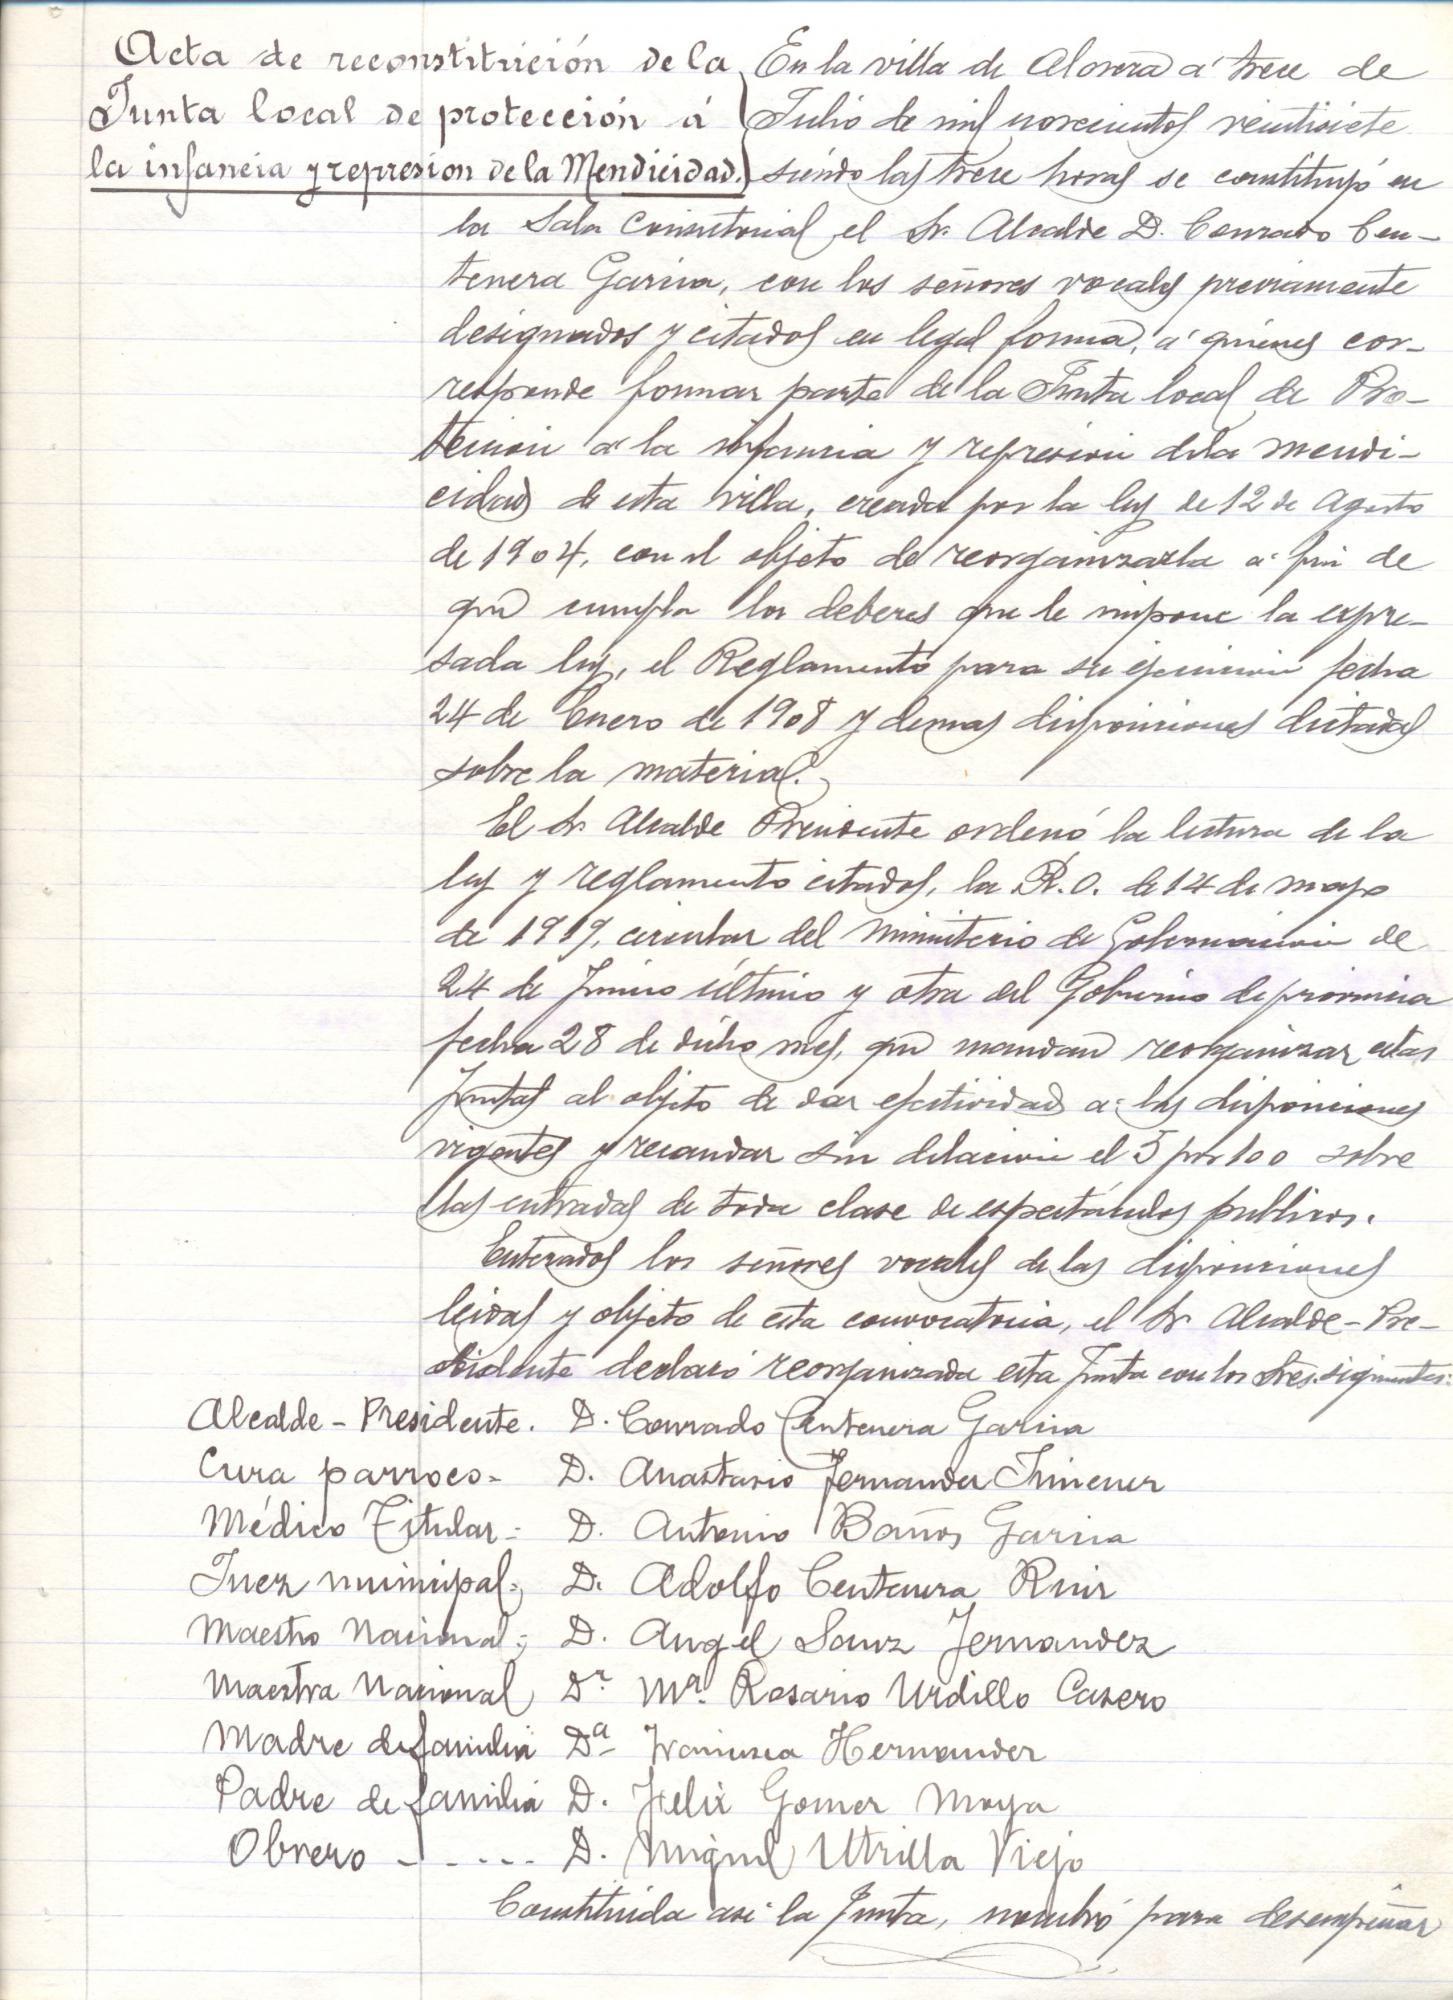 Acta de reconstitución de la
Junta local de protección á
la infancia y represion de la Mendicidad.
En la villa de Alovera á trece de
Julio de mil novecientos veintisiete
siendo las trece horas se constituyó en
la Sala Consistorial el Sr. Alcalde D. Conrado Cen-
tenera Garcia, con los señores vocales previamente
designados y citados en legal forma, á quienes cor-
responde formar parte de la Junta local de Pro-
tección a la infancia y represión de la mendi-
cidad de esta villa, creada por la ley de 12 de Agosto
de 1904, con el objeto de reorganizarla a fin de
que cumpla los deberes que le impone la expre-
sada ley, el Reglamento para su ejecución fecha
24 de Enero de 1908 y demas disposiciones dictadas
sobre la materia.
El Sr. Alcalde Presidente ordenó la lectura de la
ley y reglamento citados, la R. O. de 14 de mayo
de 1919, circular del Ministerio de Gobernación de
24 de Junio último y otra del Gobierno de provincia
fecha 28 de dicho mes, que mandan reorganizar estas
Juntas al objeto de dar efectividad a las disposiciones
vigentes y recaudar sin dilación el 5 por 100 sobre
las entradas de toda clase de espectáculos publicos.
Enterados los señores vocales de las disposiciones
leidas y objeto de esta convocatoria, el Sr. Alcalde-Pre-
sidente declaró reorganizada esta Junta con los Sres. siguientes:
Alcalde - Presidente. D. Conrado Centenera Garcia
Cura parroco - D. Anastasio Fernandez Jimenez
Médico Titular - D. Antonio Baños Garcia
Juez municipal - D. Adolfo Centenera Ruiz
Maestro Nacional - D. Angel Sanz Fernandez
Maestra Nacional Dª Mª. Rosario Urdillo Casero
Madre de familia Dª Francisca Hernandez
Padre de familia D. Felix Gomez Moya
Obrero - - - - - D. Miguel Utrilla Viejo
Constituida asi la Junta, nombró para desempeñar